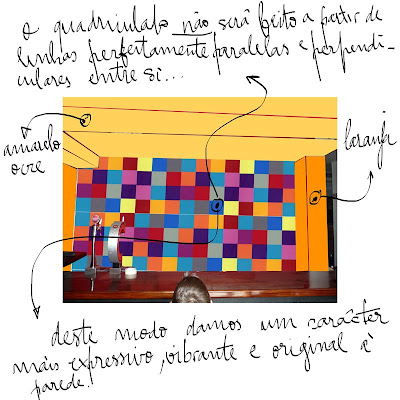 o quadriculado não será feito a partir de
linhas perfeitamente paralelas e perpendi-
culares entre si...
amarelo
ocre
laranja
deste modo damos um carácter
mais expressivo, vibrante e original à
parede!